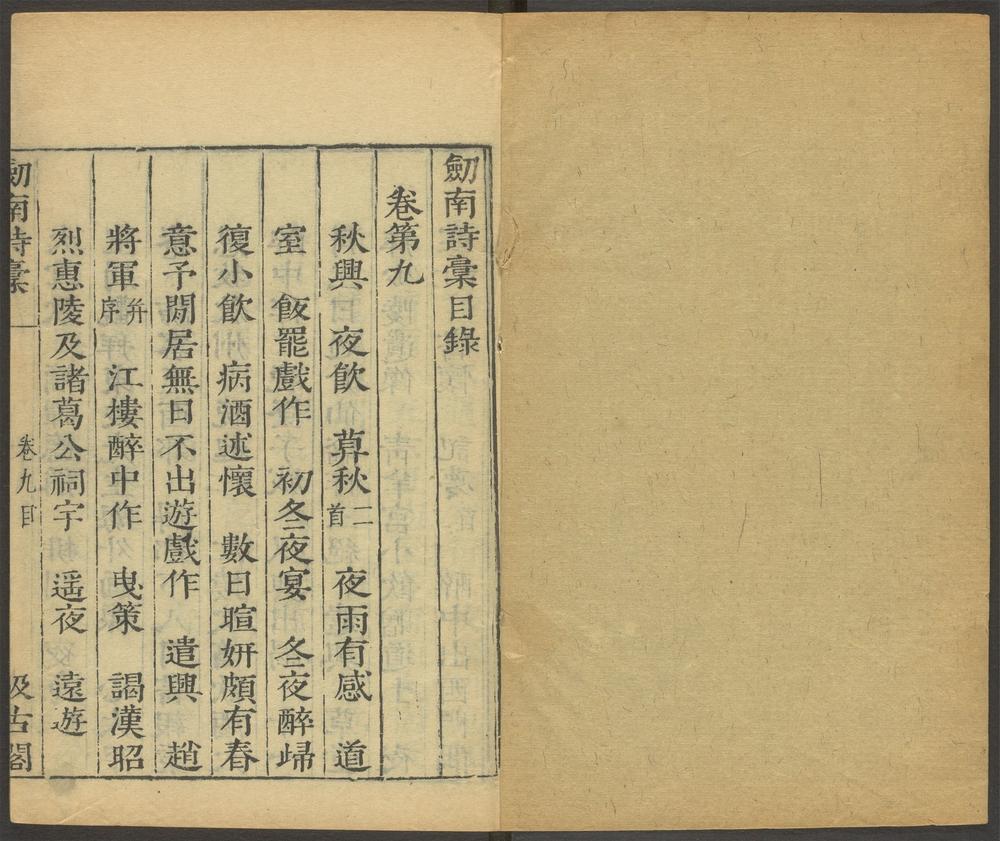 劒南詩稾目錄
卷第九
秋興 夜飲 莫秋二首 夜雨有感 道
室 飯罷戲作 初冬夜宴 冬夜醉歸
復小飲 病酒述懷 數日暄妍頗有春
意予閒居無日不出遊戲作 遣興 趙
將軍并序 江樓醉中作 曳策 謁漢昭
烈惠陵及諸葛公祠宇 遥夜 遠遊
劒南詩稾 卷九目 汲古閣